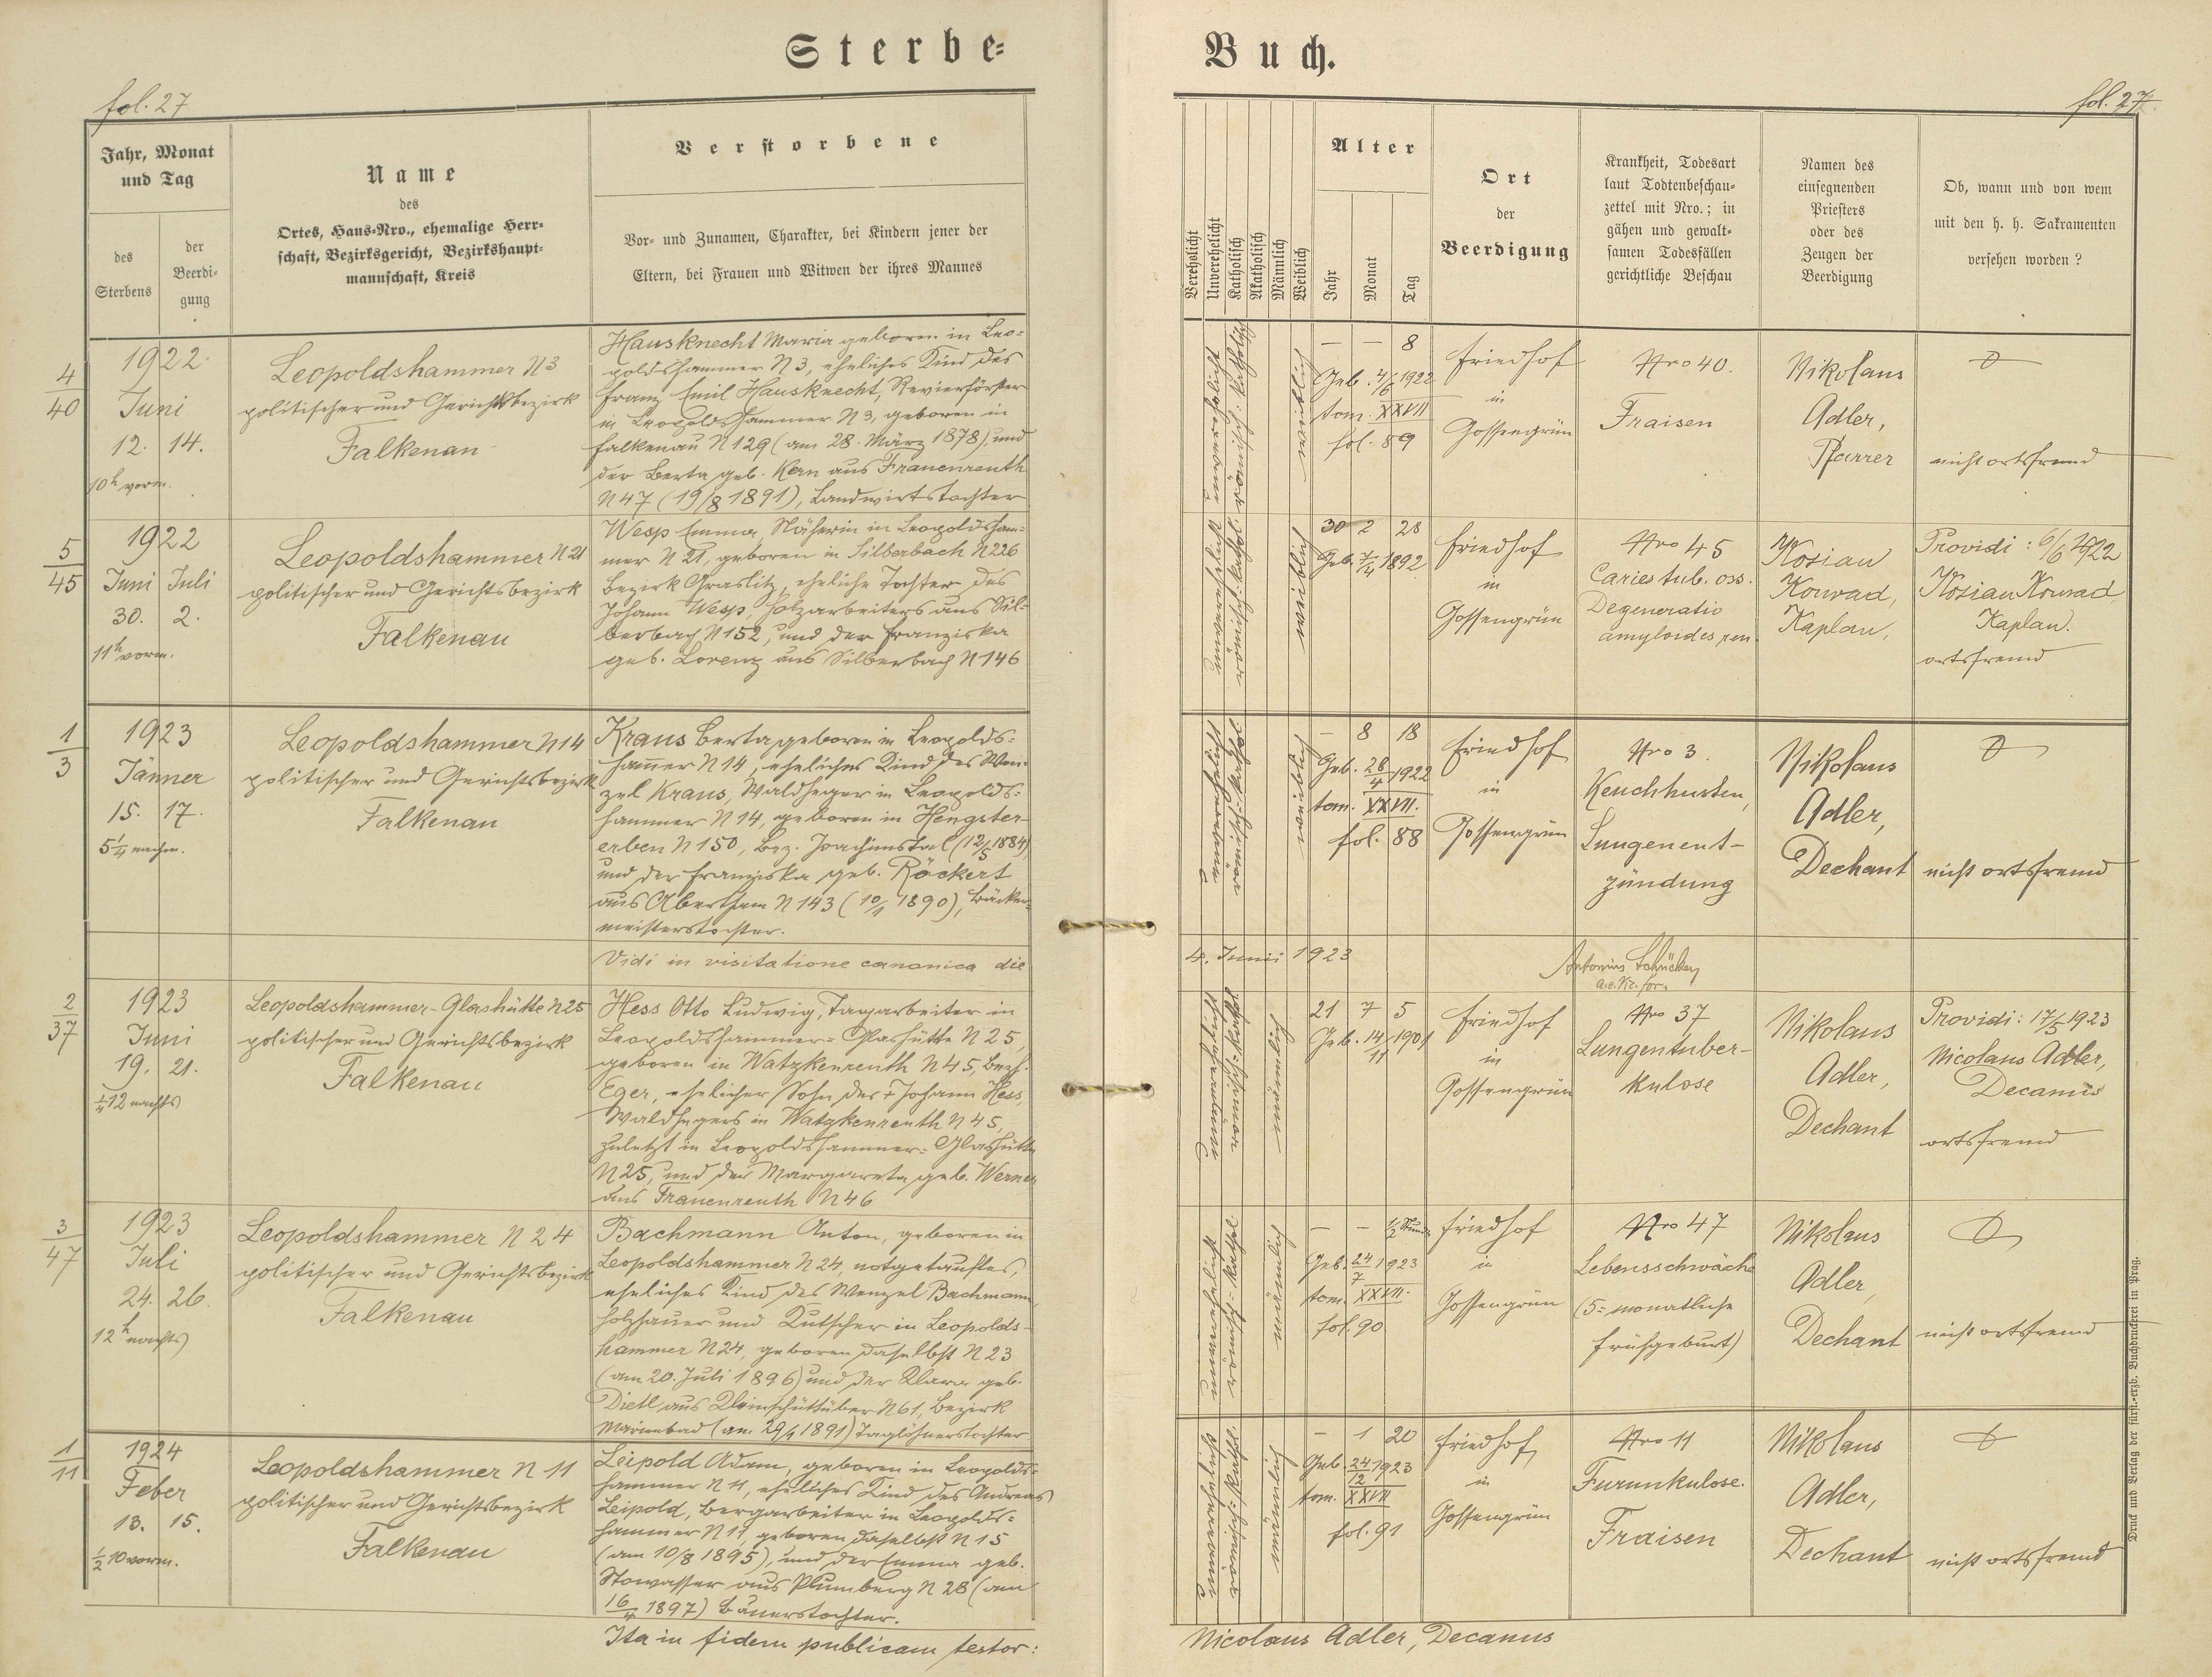 Sterbe-
Buch.
fol. 27
fol. 27.
Jahr, Monat
und Tag
des
Sterbens
der
Beerdi-
gung
Name
des
Ortes, Haus-Nro., ehemalige Herr-
schaft, Bezirksgericht, Bezirkshaupt-
mannschaft, Kreis
Verstorbene
Vor- und Zunamen, Charakter, bei Kindern jener der
Eltern, bei Frauen und Witwen der ihres Mannes
Verehelicht
Unverehelicht
Katholisch
Akatholisch
Männlich
Weiblich
Alter
Jahr
Monat
Tag
Ort
der
Beerdigung
Krankheit, Todesart
laut Todtenbeschau-
zettel mit Nro.; in
gähen und gewalt-
samen Todesfällen
gerichtliche Beschau
Namen des
einsegnenden
Priesters
oder des
Zeugen der
Beerdigung
Ob, wann und von wem
mit den h. h. Sakramenten
versehen worden?
4/40
1922
Juni
12. 14.
10h vorm.
Leopoldshammer N3
politischer und Gerichtsbezirk
Falkenau
Hausknecht Maria geboren in Leo-
poldshammer N 3, eheliches Kind des
Franz Emil Hausknecht, Revierförster
in Leopoldshammer N 3, geboren in
Falkenau N 129 (am 28. März 1878) und
der Berta geb. Kern aus Frauenreuth
N 47 (19/8 1891), Landwirtstochter
unverehelicht
römisch-katholisch
weiblich
— — 8
Geb. 4/6 1922
tom. XXVII
fol. 89
Friedhof
in
Gossengrün
Nro 40.
Fraisen
Nikolaus
Adler,
Pfarrer
nicht ortsfremd
5/45
1922
Juni Juli
30. 2.
11h vorm.
Leopoldshammer N 21
politischer und Gerichtsbezirk
Falkenau
Wesp Emma, Näherin in Leopoldsham-
mer N 21, geboren in Silberbach N 226
Bezirk Graslitz, eheliche Tochter des
Johann Wesp, Holzarbeiters aus Sil-
berbach N 152, und der Franziska
geb. Lorenz aus Silberbach N 146
unverehelicht
römisch-kathol.
weiblich
30 2 28
Geb. 2/4 1892
Friedhof
in
Gossengrün
Nro 45
Caries tub. oss.
Degeneratio
amyloides ren.
Kosian
Konrad,
Kaplan,
Providi: 6/6 1922
Kosian Konrad
Kaplan.
ortsfremd
1/3
1923
Jänner
15. 17.
5 1/4 nachm.
Leopoldshammer N 14
politischer und Gerichtsbezirk
Falkenau
Kraus Berta geboren in Leopolds-
hammer N 14, eheliches Kind des Wen-
zel Kraus, Waldheger in Leopolds-
hammer N 14, geboren in Hengster-
erben N 150, Bez. Joachimstal (12/5 1884)
und der Franziska geb. Röckert
aus Abertham N 143 (10/1 1890), Bäcker-
meisterstochter.
unverehelicht
römisch-kathol.
weiblich
— 8 18
Geb. 28/4 1922
tom. XXVII.
fol. 88
Friedhof
in
Gossengrün
Nro 3.
Keuchhusten,
Lungenent-
zündung
Nikolaus
Adler,
Dechant
nicht ortsfremd
Vidi in visitatione canonica die
4. Junii 1923
Antonius
2/37
1923
Juni
19. 21.
1/4 12 nachts
Leopoldshammer-Glashütte N 25
politischer und Gerichtsbezirk
Falkenau
Hess Otto Ludwig, Tagarbeiter in
Leopoldshammer-Glashütte N 25,
geboren in Watzkenreuth N 45, Bezh.
Eger, ehelicher Sohn des + Johann Hess,
Waldhegers in Watzkenreuth N 45,
zuletzt in Leopoldshammer-Glashütte
N 25, und der Margareta geb. Werner
aus Frauenreuth N 46
unverehelicht
römisch-kathol.
männlich
21 7 5
Geb. 14/11 1901
Friedhof
in
Gossengrün
Nro 37
Lungentuber-
kulose
Nikolaus
Adler,
Dechant
Providi: 17/5 1923
Nicolaus Adler,
Decanus
ortsfremd
3/47
1923
Juli
24. 26.
12h nachts
Leopoldshammer N 24
politischer und Gerichtsbezirk
Falkenau
Bachmann Anton, geboren in
Leopoldshammer N 24, notgetauftes,
eheliches Kind des Wenzel Bachmann,
Holzhauer und Kutscher in Leopolds-
hammer N 24, geboren daselbst N 23
(am 20. Juli 1896) und der Klara geb.
Dietl aus Kleinschüttüber N 61, Bezirk
Marienbad (am 29/1 1891) Taglöhnerstochter
unverehelicht
römisch-kathol.
männlich
— — 1/2 Stunde
Geb. 24/7 1923
tom. XXVII.
fol. 90
Friedhof
in
Gossengrün
Nro 47
Lebensschwäche
(5-monatliche
Frühgeburt)
Nikolaus
Adler,
Dechant
nicht ortsfremd
1/11
1924
Feber
13. 15.
1/2 10 vorm.
Leopoldshammer N 11
politischer und Gerichtsbezirk
Falkenau
Leipold Adam, geboren in Leopolds-
hammer N 11, eheliches Kind des Andreas
Leipold, Bergarbeiter in Leopolds-
hammer N 11 geboren daselbst N 15
(am 10/8 1895), und der Emma geb.
Stowasser aus Plumberg N 28 (am
16/4 1897) Bauerstochter.
unverehelicht
römisch-kathol.
männlich
— 1 20
Geb. 24/12 1923
tom. XXVII
fol. 91
Friedhof
in
Gossengrün
Nro 11
Furunkulose.
Fraisen
Nikolaus
Adler,
Dechant
nicht ortsfremd
Ita in fidem publicam testor:
Nicolaus Adler, Decanus
Druck und Verlag der fürst.-erzb. Buchdruckerei in Prag.